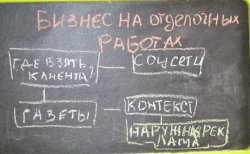 БИЗНЕС НА ОТДЕЛОЧНЫХ
РАБОТАХ
ГДЕ ВЗЯТЬ
КЛИЕНТА?
СОЦСЕТИ
ГАЗЕТЫ
КОНТЕКСТ
НАРУЖН. РЕК
ЛАМА